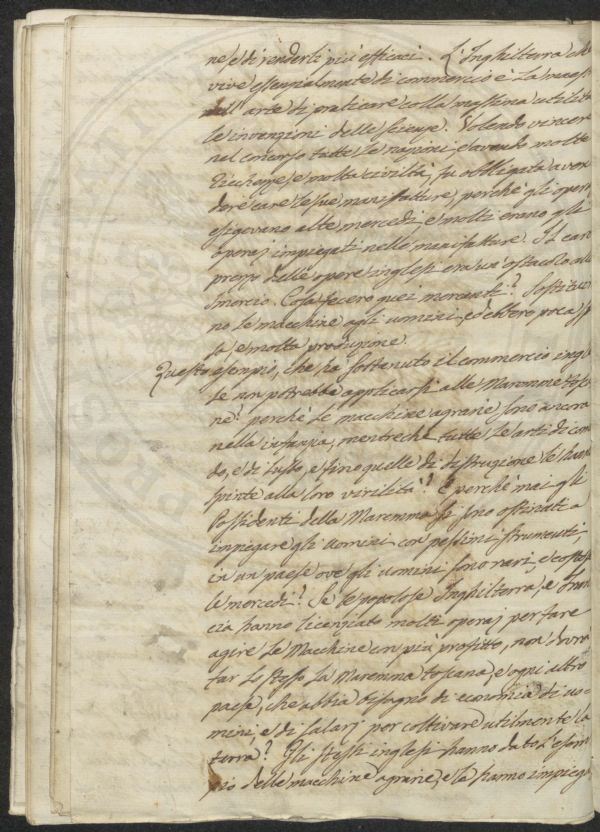 ne, e di renderli più efficaci. L'Inghilterra che
vive essenzialmente di commercio è la maest
nell'arte di praticare colla massima utilità
le invenzioni delle scienze. Volendo vincere
nel concorso tutte le nazioni, ed avendo molte
ricchezze, e molta civiltà, fu obbligata a ven
dere care le sue manifatture, perchè gli operaj
esigevano alte mercedi, e molti erano gli
operaj impiegati nelle manifatture. Il caro
prezzo delle opere inglesi era un ostacolo allo
smercio. Cosa fecero quei mercanti? Sostituiro
no le macchine agli uomini, ed ebbero poca spe
sa, e molta produzione.
Questo esempio, che ha sostenuto il commercio ingle
se non potrebbe applicarsi alle Maremme tosca
ne? perchè le macchine agrarie sono ancora
nella infanzia, mentrechè tutte le arti di como
do, e di lusso, e fino quelle di distruzione le hanno
spinte alla loro virilità? E perchè mai gli
Possidenti della Maremma si sono ostinati a
impiegare gli uomini con pessimi strumenti,
in un paese ove gli uomini sono rari, e costose
le mercedi? Se le popolose Inghilterra, e Fran
cia hanno licenziato molti operaj per fare
agire le Macchine con più profitto, non dovrà
far lo stesso la Maremma toscana, e ogni altro
paese, che abbia bisogno di economia di uo
mini, e di salarj per coltivare utilmente la
terra? Gli stessi inglesi hanno dato l'esem
pio delle macchine agrarie, e le hanno impieg